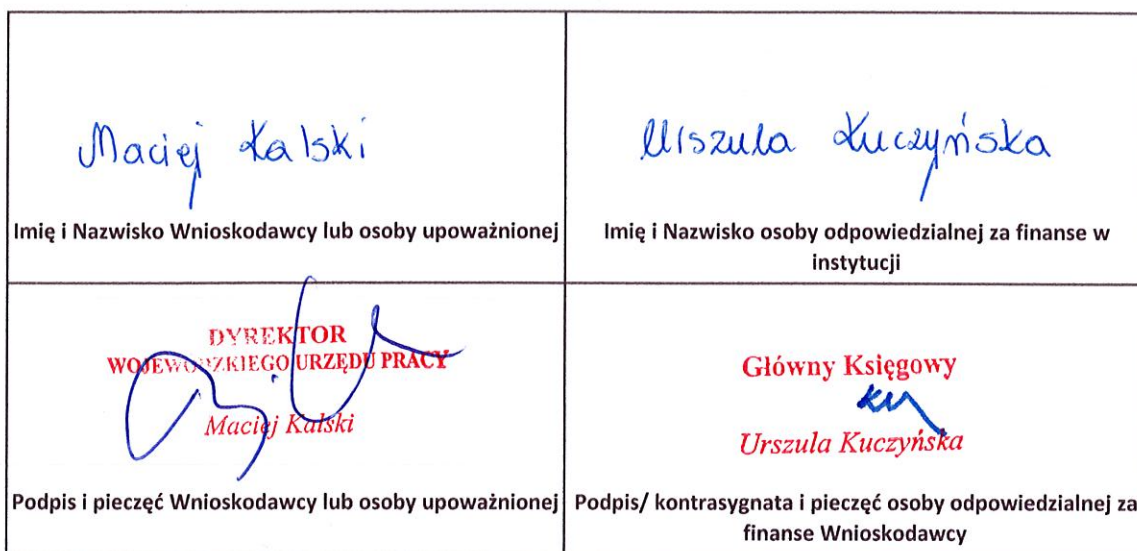 Maciej Kalski
Imię i Nazwisko Wnioskodawcy lub osoby upoważnionej
Urszula Kuczyńska
Imię i Nazwisko osoby odpowiedzialnej za finanse w
instytucji
DYREKTOR
WOJEWÓDZKIEGO URZĘDU PRACY
Maciej Kalski
Podpis i pieczęć Wnioskodawcy lub osoby upoważnionej
Główny Księgowy
Urszula Kuczyńska
Podpis/ kontrasygnata i pieczęć osoby odpowiedzialnej za
finanse Wnioskodawcy